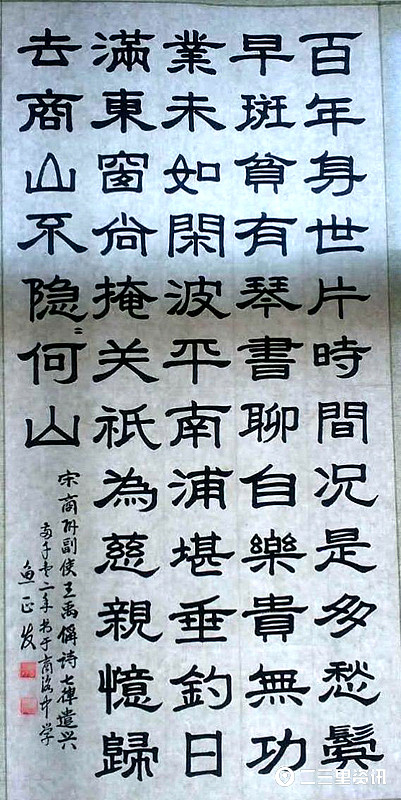 百年身世片時間况是多愁鬓
早斑貧有琴書聊自樂貴無功
業未如閑波平南浦堪垂釣日
滿東窗尚掩关祇為慈親憶歸
去商山不隐〻何山
宋商州副使王禹偁诗七律遣兴
二年书于商洛中学
鱼正发
二三里资讯